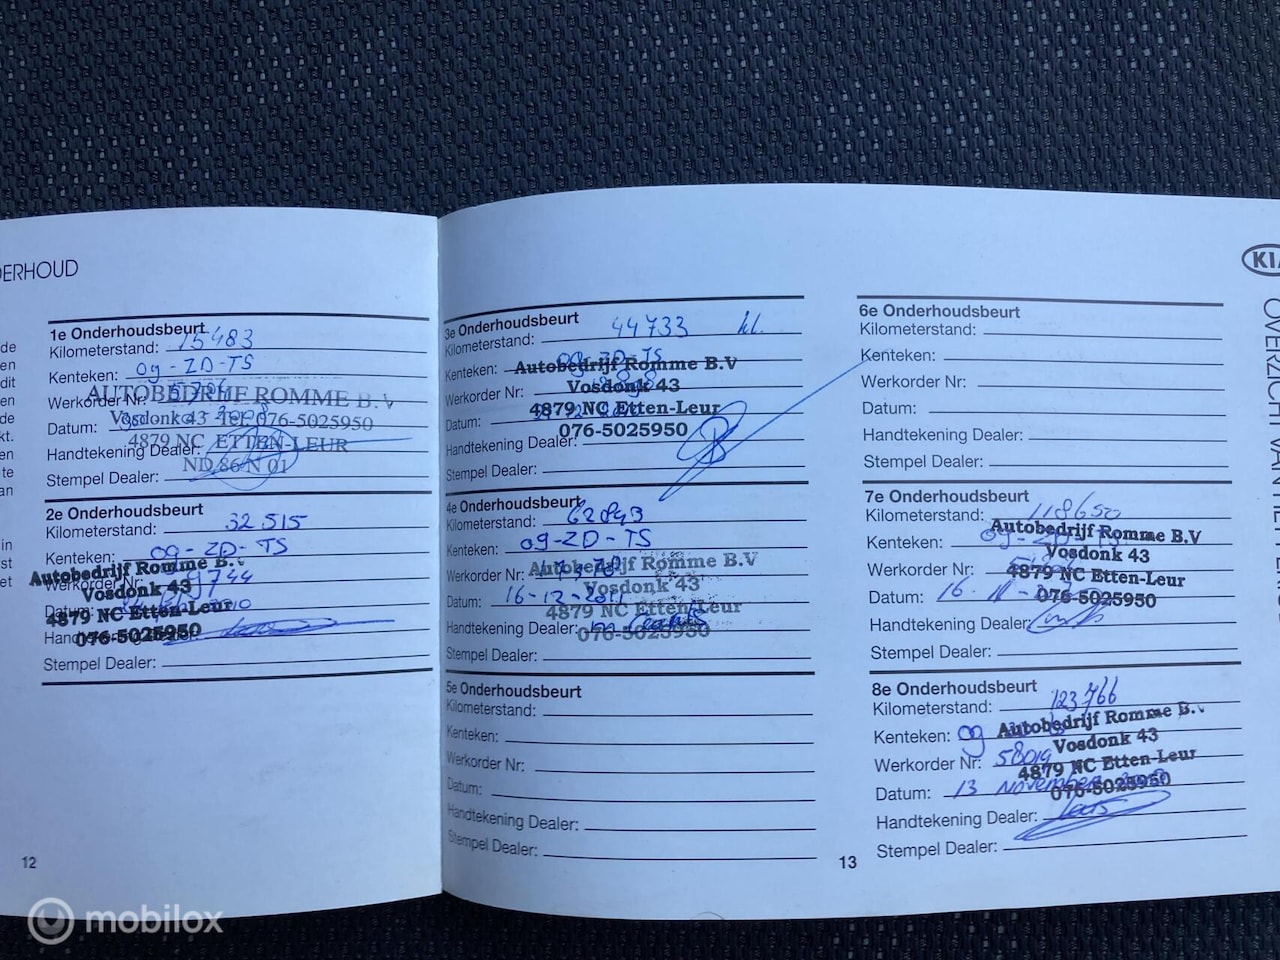 DERHOUD
1e Onderhoudsbeurt
Kilometerstand: 15483
Kenteken: 09-ZD-TS
Werkorder Nr:
AUTOBEDRIJF ROMME B.V
Datum:
Vosdonk 43 Tel. 076-5025950
4879 NC ETTEN-LEUR
Handtekening Dealer:
ND 86 N 01
Stempel Dealer:
2e Onderhoudsbeurt
Kilometerstand: 32515
Kenteken: 09-ZD-TS
Autobedrijf Romme B.V.
Werkorder Nr:
Vosdonk 43
Datum:
4879 NC Etten-Leur
076-5025950
Stempel Dealer:
12
3e Onderhoudsbeurt
Kilometerstand: 44733 kl.
Kenteken: 09-ZD-TS
Autobedrijf Romme B.V
Werkorder Nr:
Vosdonk 43
Datum:
4879 NC Etten-Leur
076-5025950
Handtekening Dealer:
Stempel Dealer:
4e Onderhoudsbeurt
Kilometerstand: 62893
Kenteken: 09-ZD-TS
Autobedrijf Romme B.V
Werkorder Nr:
Vosdonk 43
Datum: 16-12-2011
4879 NC Etten-Leur
Handtekening Dealer:
076-5025950
Stempel Dealer:
5e Onderhoudsbeurt
Kilometerstand:
Kenteken:
Werkorder Nr:
Datum:
Handtekening Dealer:
Stempel Dealer:
13
6e Onderhoudsbeurt
Kilometerstand:
Kenteken:
Werkorder Nr:
Datum:
Handtekening Dealer:
Stempel Dealer:
7e Onderhoudsbeurt
Kilometerstand: 118650
Autobedrijf Romme B.V
Kenteken: 09-ZD-TS
Vosdonk 43
Werkorder Nr:
4879 NC Etten-Leur
Datum: 16.
076-5025950
Handtekening Dealer:
Stempel Dealer:
8e Onderhoudsbeurt
Kilometerstand: 123766
Autobedrijf Romme B.V.
Kenteken: 09
Vosdonk 43
Werkorder Nr: 58019
4879 NC Etten-Leur
Datum: 13 November
076-5025950
Handtekening Dealer:
Stempel Dealer:
KIA
OVERZICHT VAN HET
mobilox